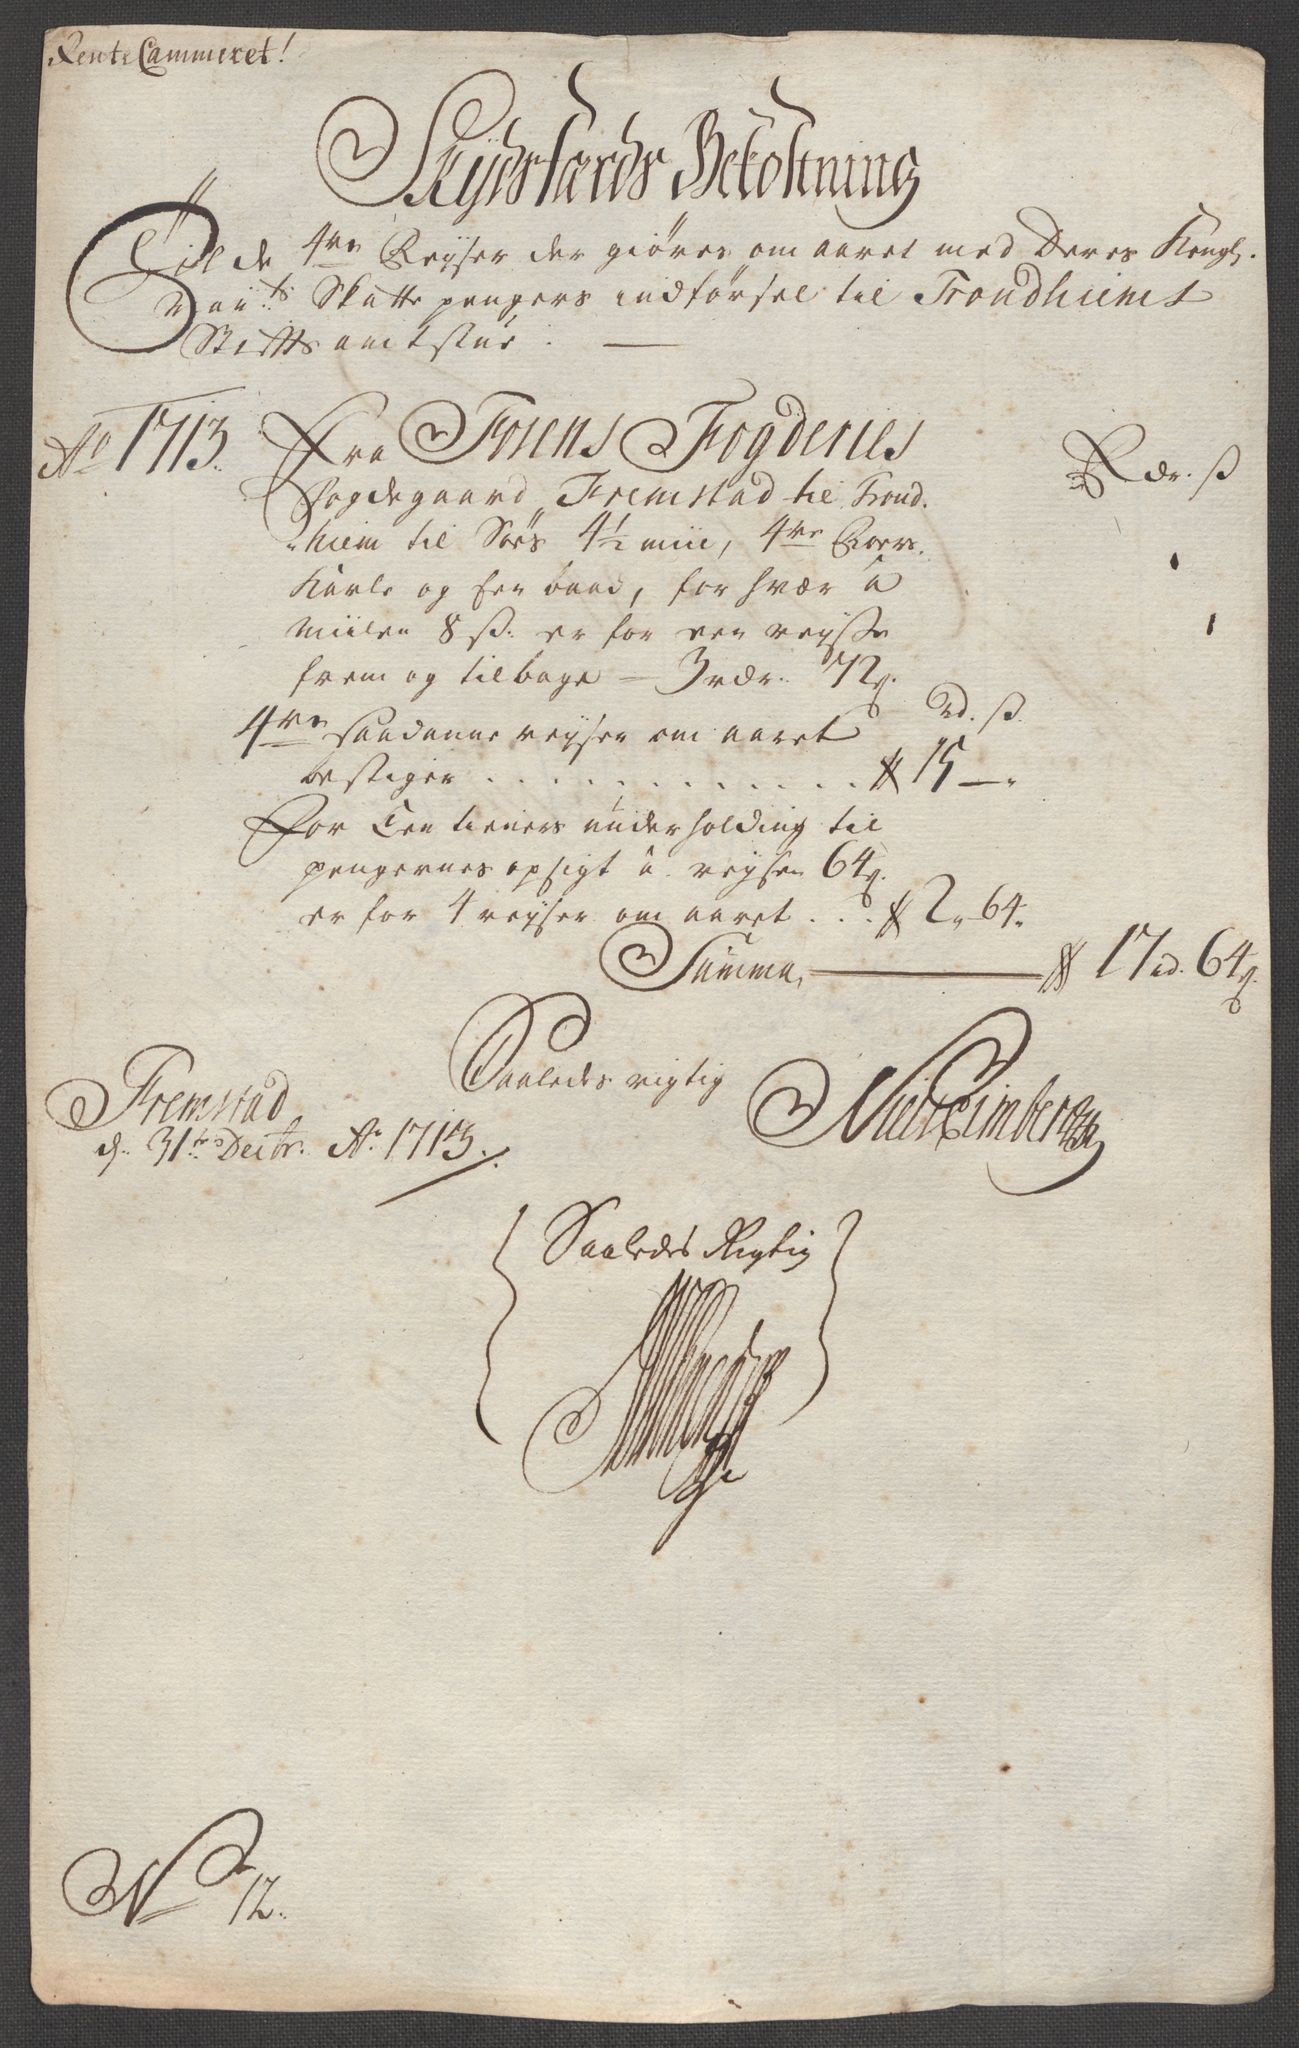 RenteCammeret!
Skydsfærds Bekostning
Til de 4re Reyser der giöres om aaret med Deres Kongl.
Maÿts Skatte pengers indförsel til Trondhiems
Stiftsamtstue.
Ao 1713. Fra Fosens Fogderies Rdr. ß
Fogdegaard Fremstad til Trond-
hiem til Söes 4½ miil, 4re Roers-
Karle og een baad, for hvær â
Miilen 8 ß. er for een reyse
frem og tilbage — 3 rdr. 72 ß.
4re saadanne reyser om aaret rd. ß.
bestiger . . . . . . . . . . . . 15 —
For Een tieners underholding til
pengernes opsigt â reysen 64 ß.
er for 4 reyser om aaret . . . 2 „ 64 „
Summa, — 17 rd. 64 ß.
Saaledes rigtig
Fremstad
d. 31te Decbr. Ao 1713.
Saaledes Rigtig
No 12.